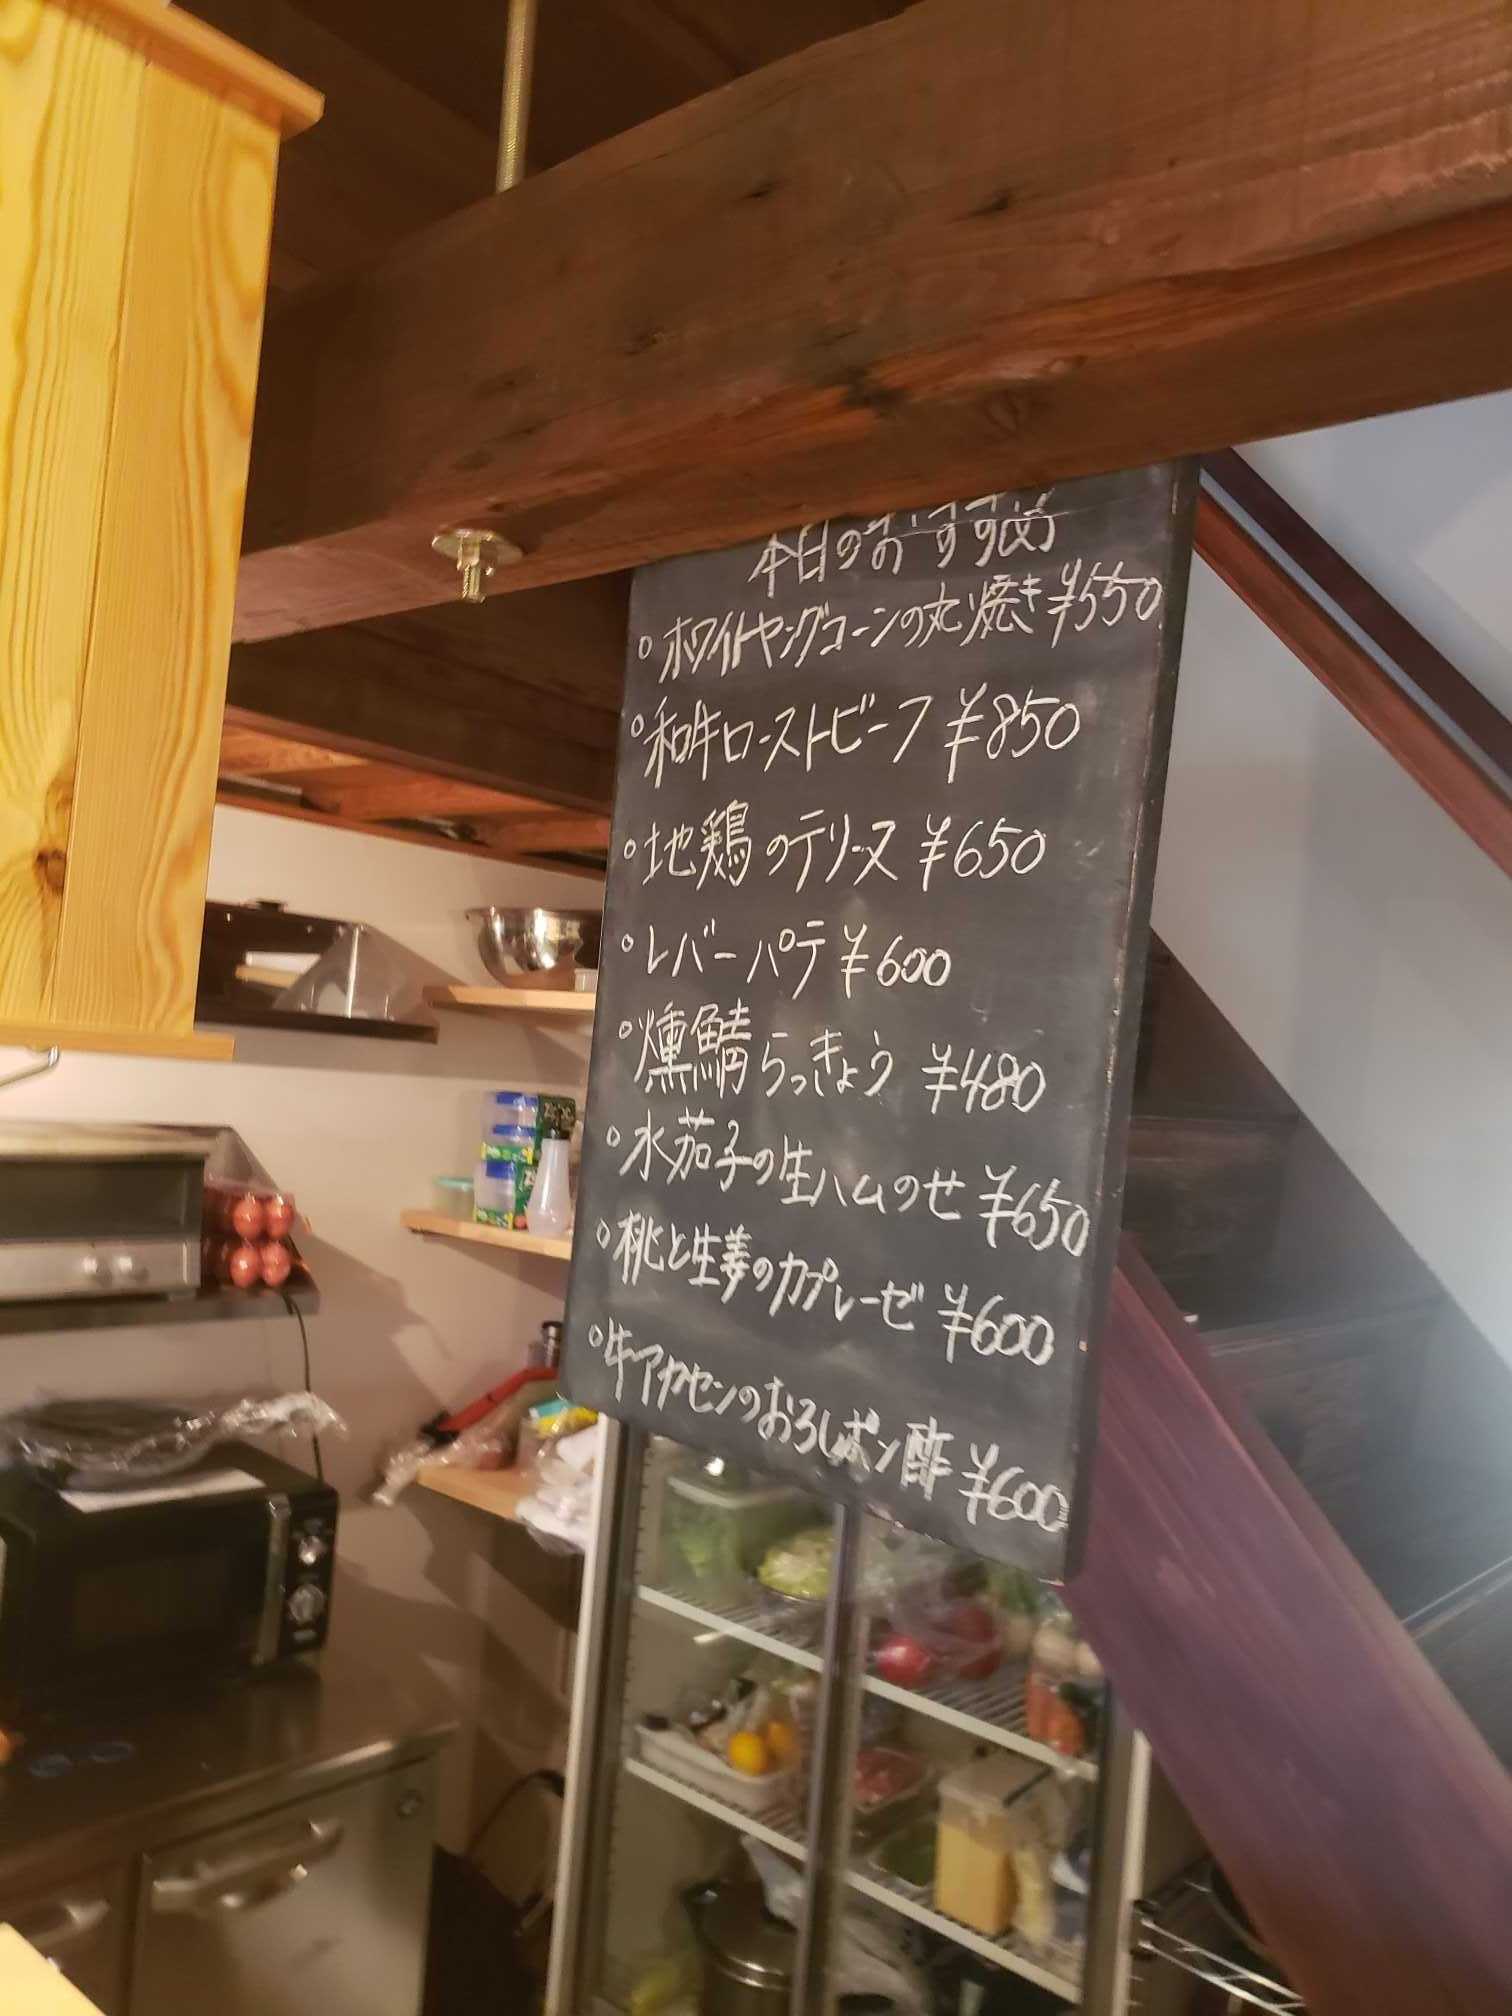 本日のおすすめ
○ホワイトヤングコーンの丸焼き ¥550
○和牛ローストビーフ ¥850
○地鶏のテリーヌ ¥650
○レバーパテ ¥600
○燻鯖らっきょう ¥480
○水茄子の生ハムのせ ¥650
○桃と生姜のカプレーゼ ¥600
○牛アカセンのおろしポン酢 ¥600